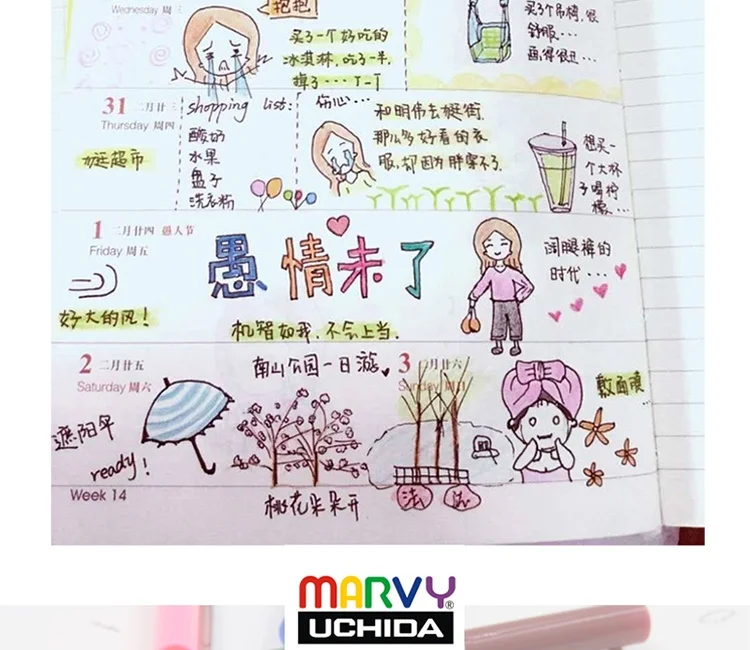 Wednesday 周三
抱抱
买了一个好吃的
冰淇淋,吃了一半,
掉了···T-T
买了个吊椅,很
舒服...
画得很丑...
31 二月廿三
Thursday 周四
逛超市
shopping list:
酸奶
水果
盘子
洗衣粉
伤心...
和明伟去逛街
那么多好看的衣
服,却因为胖穿不了.
想买一
个大杯
子喝柠
檬...
1 二月廿四 愚人节
Friday 周五
好大的风!
愚情未了
机智如我,不会上当.
阔腿裤的
时代...
2 二月廿五
Saturday 周六
遮阳伞
ready!
南山公园一日游
桃花朵朵开
3 二月廿六
Sunday 周日
敷面膜
Week 14
MARVY®
UCHIDA